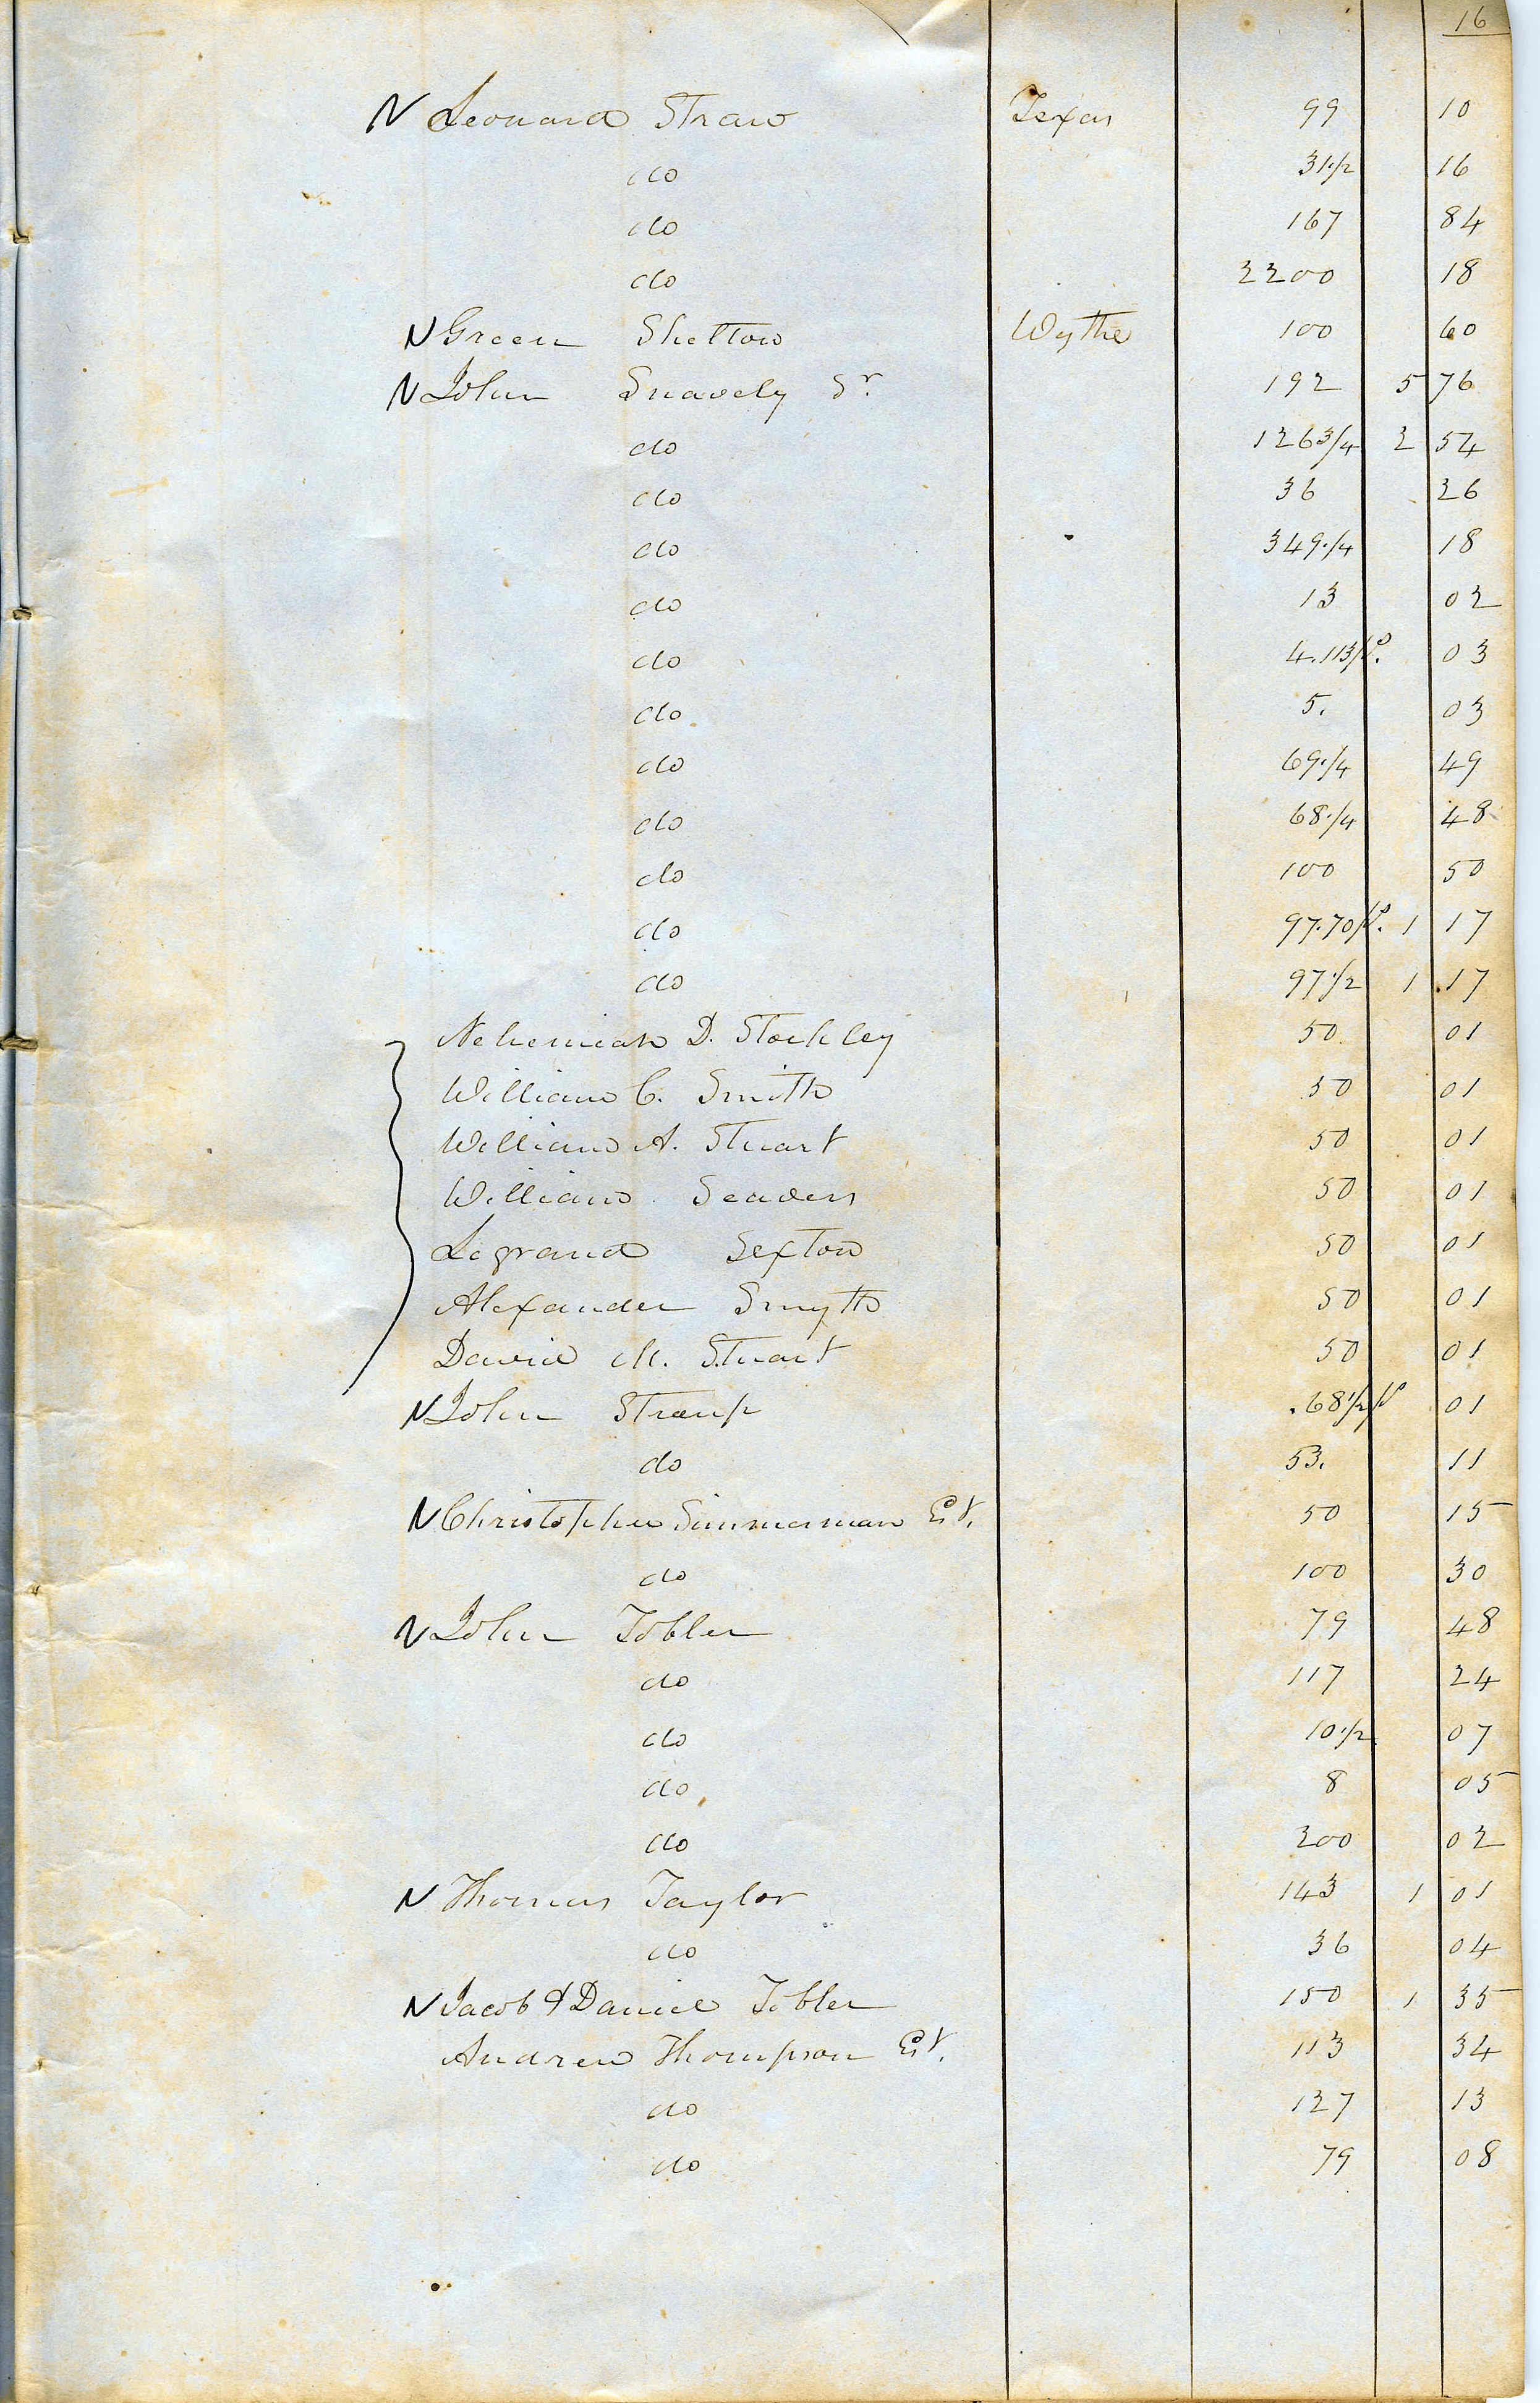 16
N Leonard Straw Texas 99 10
do 31 1/2 16
do 167 84
do 2200 18
N Green Shelton Wythe 100 60
N John Snavely Sr 192 5 76
do 126 3/4 2 54
do 36 26
do 349 1/4 18
do 13 02
do 4.113/P. 03
do 5. 03
do 69 1/4 49
do 68 1/4 48
do 100 50
do 97.70/P. 1 17
do 97 1/2 1 17
Nehemiah D. Stockley 50 01
William C. Smith 50 01
William A. Stuart 50 01
William Seavers 50 01
Legrand Sexton 50 01
Alexander Smyth 50 01
David M. Stuart 50 01
N John Straup .68 1/2 P 01
do 53. 11
N Christopher Simmerman Est. 50 15
do 100 30
N John Tobler 79 48
do 117 24
do 10 1/2 07
do 8 05
do 200 02
N Thomas Taylor 143 1 01
do 36 04
N Jacob & Daniel Tobler 150 1 35
Andrew Thompson Est. 113 34
do 127 13
do 79 08